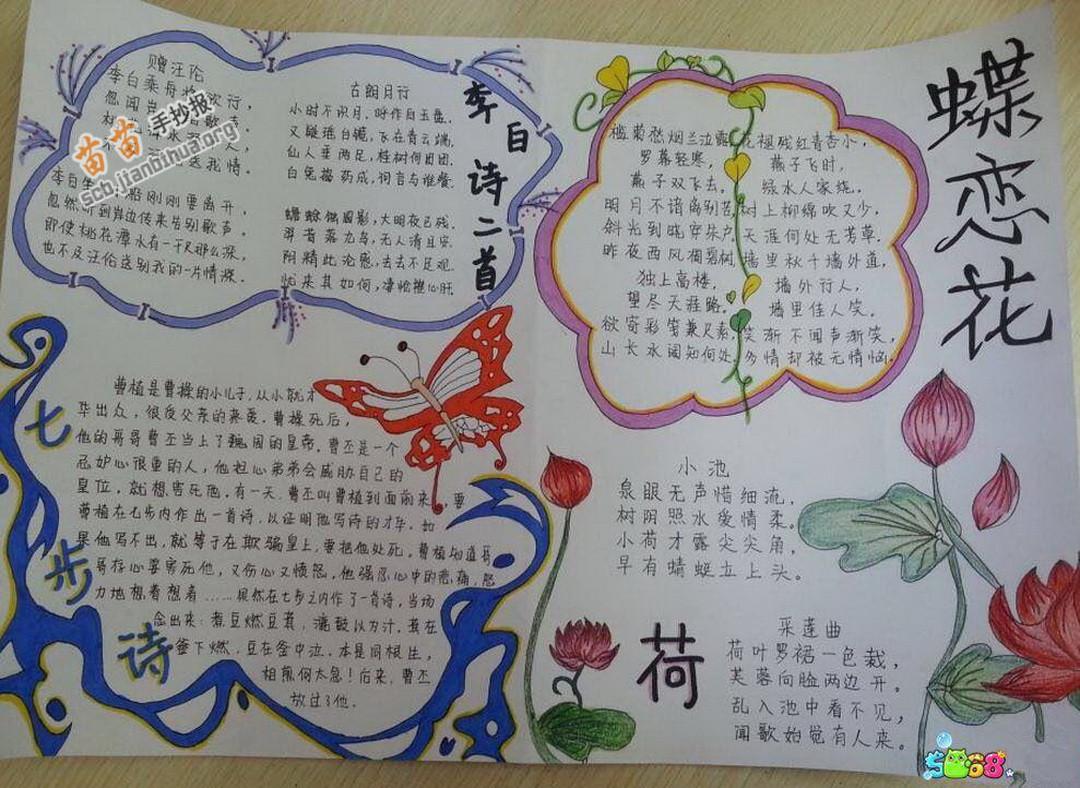 赠汪伦
李白乘舟将欲行，
忽闻岸
送我情。
李白
刚刚要离开，
忽然听到岸边传来告别歌声。
即使桃花潭水有一千尺那么深，
也不及汪伦送别我的一片情深。
古朗月行
小时不识月，呼作白玉盘。
又疑瑶台镜，飞在青云端。
仙人垂两足，桂树何团团。
白兔捣药成，问言与谁餐。
蟾蜍蚀圆影，大明夜已残。
羿昔落九乌，天人清且安。
阴精此沦惑，去去不足观。
忧来其如何，凄怆摧心肝。
李白诗二首
苗苗手抄报
scb.jianbihua.org
蝶恋花
槛菊愁烟兰泣露
罗幕轻寒，
燕子双飞去。
明月不谙离别苦
斜光到晓穿朱户
昨夜西风凋碧树
独上高楼，
望尽天涯路。
欲寄彩笺兼尺素
山长水阔知何处
花褪残红青杏小，
燕子飞时，
绿水人家绕。
树上柳绵吹又少，
天涯何处无芳草.
墙里秋千墙外道，
墙外行人，
墙里佳人笑。
笑渐不闻声渐笑，
多情却被无情恼。
七步诗
曹植是曹操的小儿子，从小就才
华出众，很受父亲的疼爱。曹操死后，
他的哥哥曹丕当上了魏国的皇帝。曹丕是一个
忌妒心很重的人，他担心弟弟会威胁自己的
皇位，就想害死他，有一天，曹丕叫曹植到面前来，要
曹植在七步内作出一首诗，以证明他写诗的才华。如
果他写不出，就等于在欺骗皇上，要把他处死。曹植知道哥
哥存心要害死他，又伤心又愤怒，他强忍心中的悲痛，努
力地想着想着……果然在七步之内作了一首诗，当场
念出来：煮豆燃豆萁，漉鼓以为汁。萁在
釜下燃，豆在釜中泣。本是同根生，
相煎何太急！后来，曹丕
放过了他.
小池
泉眼无声惜细流，
树阴照水爱情柔。
小荷才露尖尖角，
早有蜻蜓立上头。
荷
采莲曲
荷叶罗裙一色裁，
芙蓉向脸两边开。
乱入池中看不见，
闻歌始觉有人来。
5068